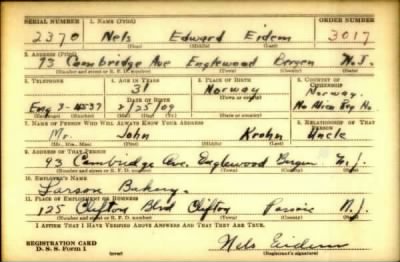 SERIAL NUMBER 1. NAME (Print) ORDER NUMBER
2370 Nels Edward Eidem 3017
(First) (Middle) (Last)
2. ADDRESS (Print)
93 Cambridge Ave Englewood Bergen N.J.
(Number and street or R. F. D. number) (Town) (County) (State)
3. TELEPHONE 4. AGE IN YEARS 5. PLACE OF BIRTH 6. COUNTRY OF CITIZENSHIP
31 Norway Norway.
DATE OF BIRTH (Town or county)
Eng 3- 2/25/09 No Alien Reg No.
(Exchange) (Number) (Mo.) (Day) (Yr.) (State or country)
7. NAME OF PERSON WHO WILL ALWAYS KNOW YOUR ADDRESS 8. RELATIONSHIP OF THAT PERSON
Mr. John Krohn Uncle
(Mr., Mrs., Miss) (First) (Middle) (Last)
9. ADDRESS OF THAT PERSON
93 Cambridge Ave. Englewood Bergen N.J.
(Number and street or R. F. D. number) (Town) (County) (State)
10. EMPLOYER'S NAME
Larson Bakery.
11. PLACE OF EMPLOYMENT OR BUSINESS
125 Clifton Blvd Clifton Passaic N.J.
(Number and street or R. F. D. number) (Town) (County) (State)
I AFFIRM THAT I HAVE VERIFIED ABOVE ANSWERS AND THAT THEY ARE TRUE.
REGISTRATION CARD
D. S. S. Form 1 (over) Nels Eidem
(Registrant's signature)